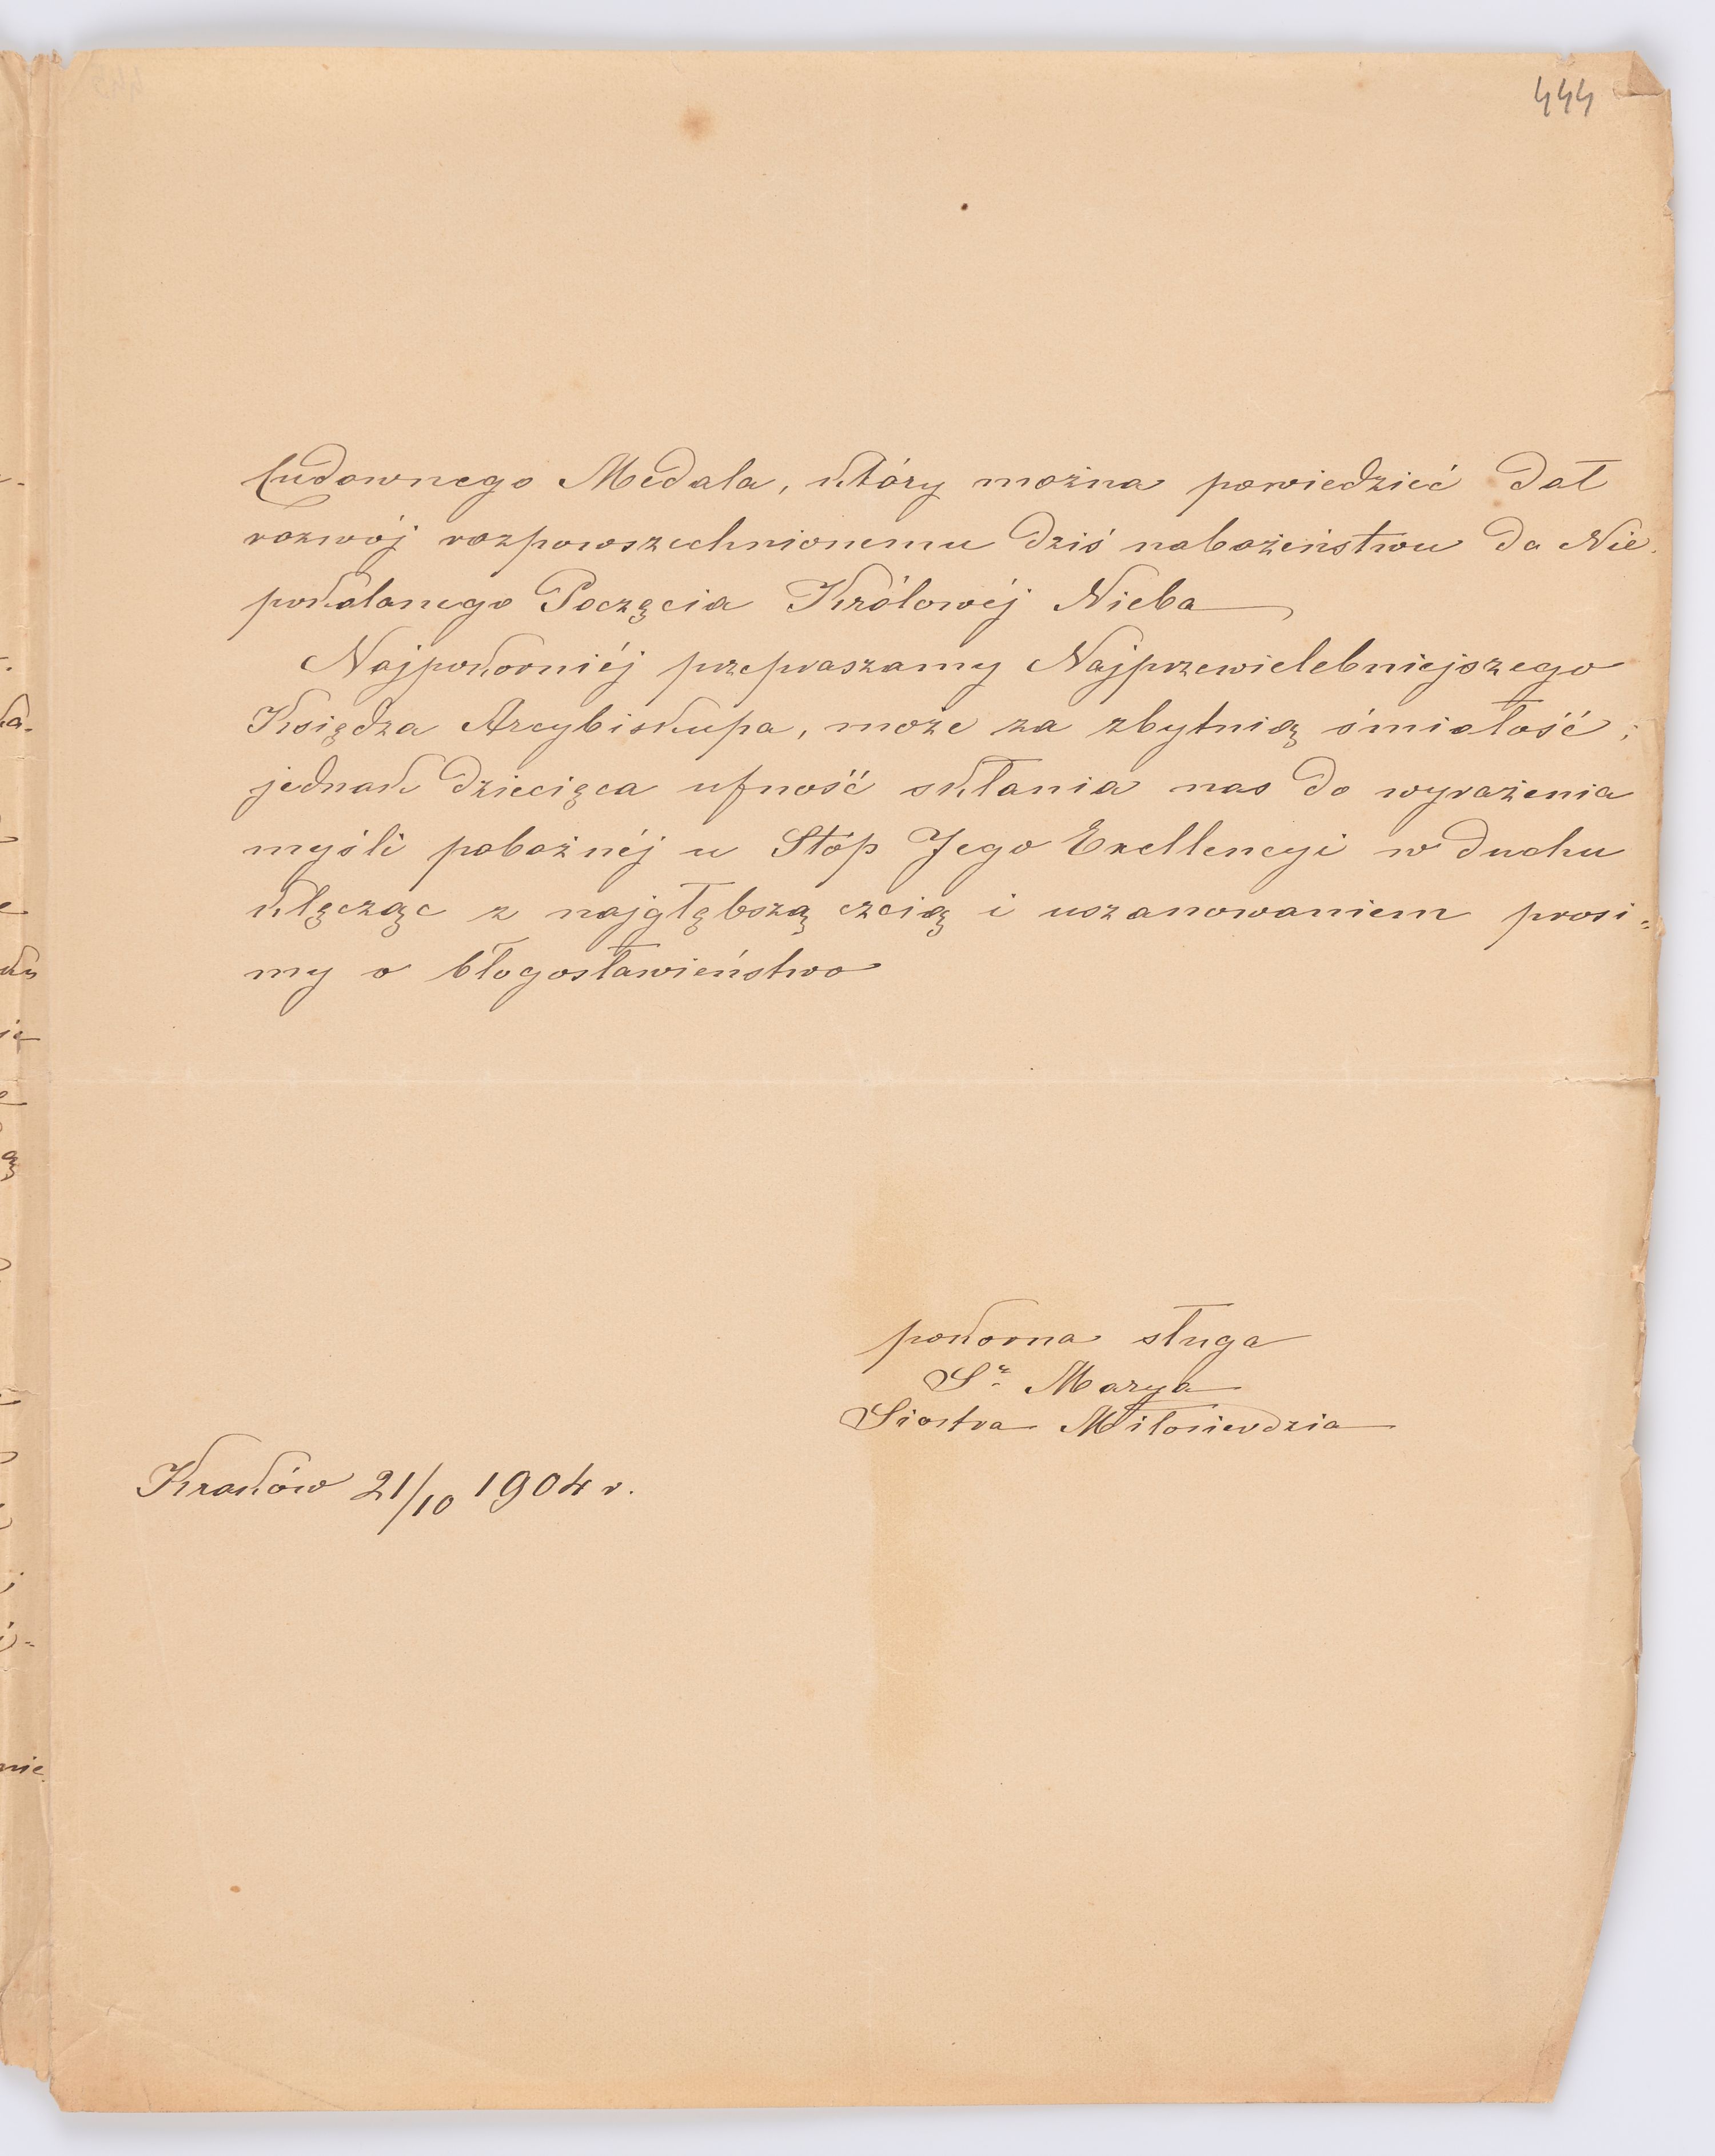 444
Cudownego Medala, który można powiedzieć dał
rozwój rozpowszechnionemu dziś nabożeństwu do Nie-
pokalanego Poczęcia Królowéj Nieba
Najpokorniéj przepraszamy Najprzewielebniejszego
Księdza Arcybiskupa, może za zbytnią śmiałość;
jednak dziecięca ufność skłania nas do wyrażenia
myśli pobożnéj u Stóp Jego Exellencyi w duchu
klęcząc z najgłębszą czcią i uszanowaniem prosi-
my o błogosławieństwo
pokorna sługa
Sr. Marya
Siostra Miłosierdzia
Kraków 21/10 1904 r.